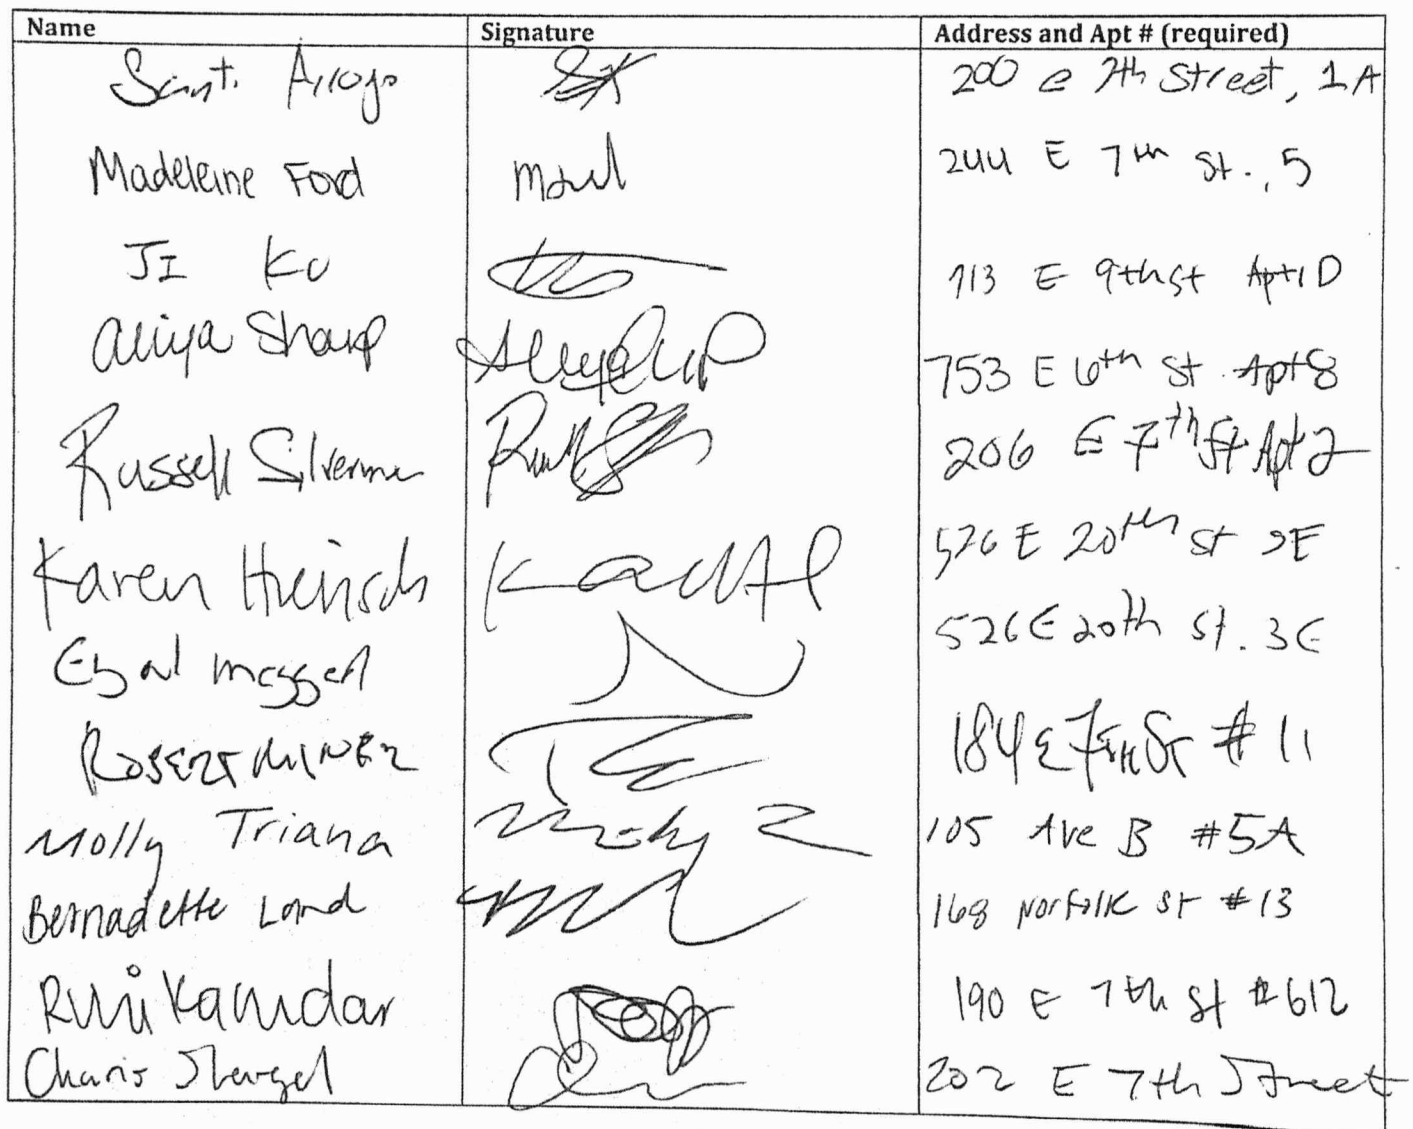 Name Signature Address and Apt # (required)
Santi Arroyo 200 e 7th Street, 1A
Madeleine Ford 244 E 7th St., 5
JI KU 713 E 9th st Apt 1D
Aliya Sharp 753 E 6th St Apt 8
Russell Silverman 206 E 7th St Apt 2
Karen Heinsch 526 E 20th St 3E
Eyal Megged 526 E 20th St. 3E
ROBERT MINER 184 E 7TH ST # 11
Molly Triana 105 Ave B #5A
Bernadette Land 168 Norfolk St #13
Kamdar 190 E 7th St #612
Charis 202 E 7th Street